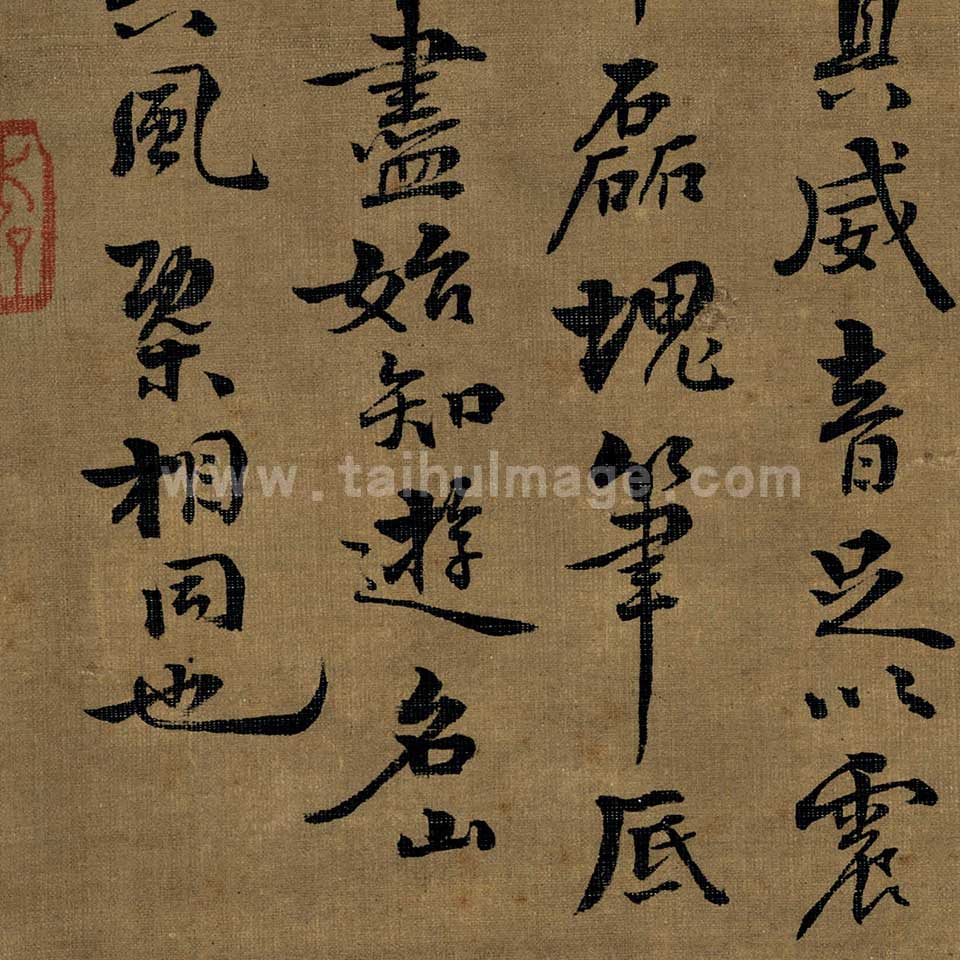 具威音足以震
磊塊筆底
盡始知遊名山
風槩相同也
www.taihuImage.com